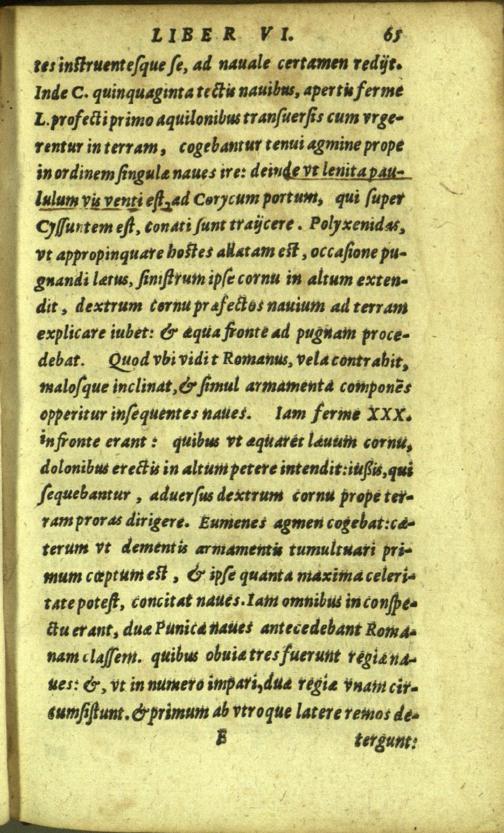 LIBER VI. 65
tes instruentesque se, ad nauale certamen redijt.
Inde C. quinquaginta tectis nauibus, apertis ferme
L. profecti primo aquilonibus transuersis cum vrge-
rentur in terram, cogebantur tenui agmine prope
in ordinem singulæ naues ire: deinde vt lenita pau-
lulum vis venti est, ad Corycum portum, qui super
Cyssuntem est, conati sunt traijcere. Polyxenidas,
vt appropinquare hostes allatam est, occasione pu-
gnandi lætus, sinistrum ipse cornu in altum exten-
dit, dextrum cornu præfectos nauium ad terram
explicare iubet: & æqua fronte ad pugnam proce-
debat. Quod vbi vidit Romanus, vela contrahit,
malosque inclinat, & simul armamenta componēs
opperitur insequentes naues. Iam ferme XXX.
in fronte erant: quibus vt æquaret læuum cornu,
dolonibus erectis in altum petere intendit: iussis, qui
sequebantur, aduersus dextrum cornu prope ter-
ram proras dirigere. Eumenes agmen cogebat: cæ-
terum vt dementis armamentis tumultuari pri-
mum cœptum est, & ipse quanta maxima celeri-
tate potest, concitat naues. Iam omnibus in conspe-
ctu erant, duæ Punicæ naues antecedebant Roma-
nam classem. quibus obuiæ tres fuerunt regiæ na-
ues: &, vt in numero impari, duæ regiæ vnam cir-
cumsistunt. & primum ab vtroque latere remos de-
E tergunt: